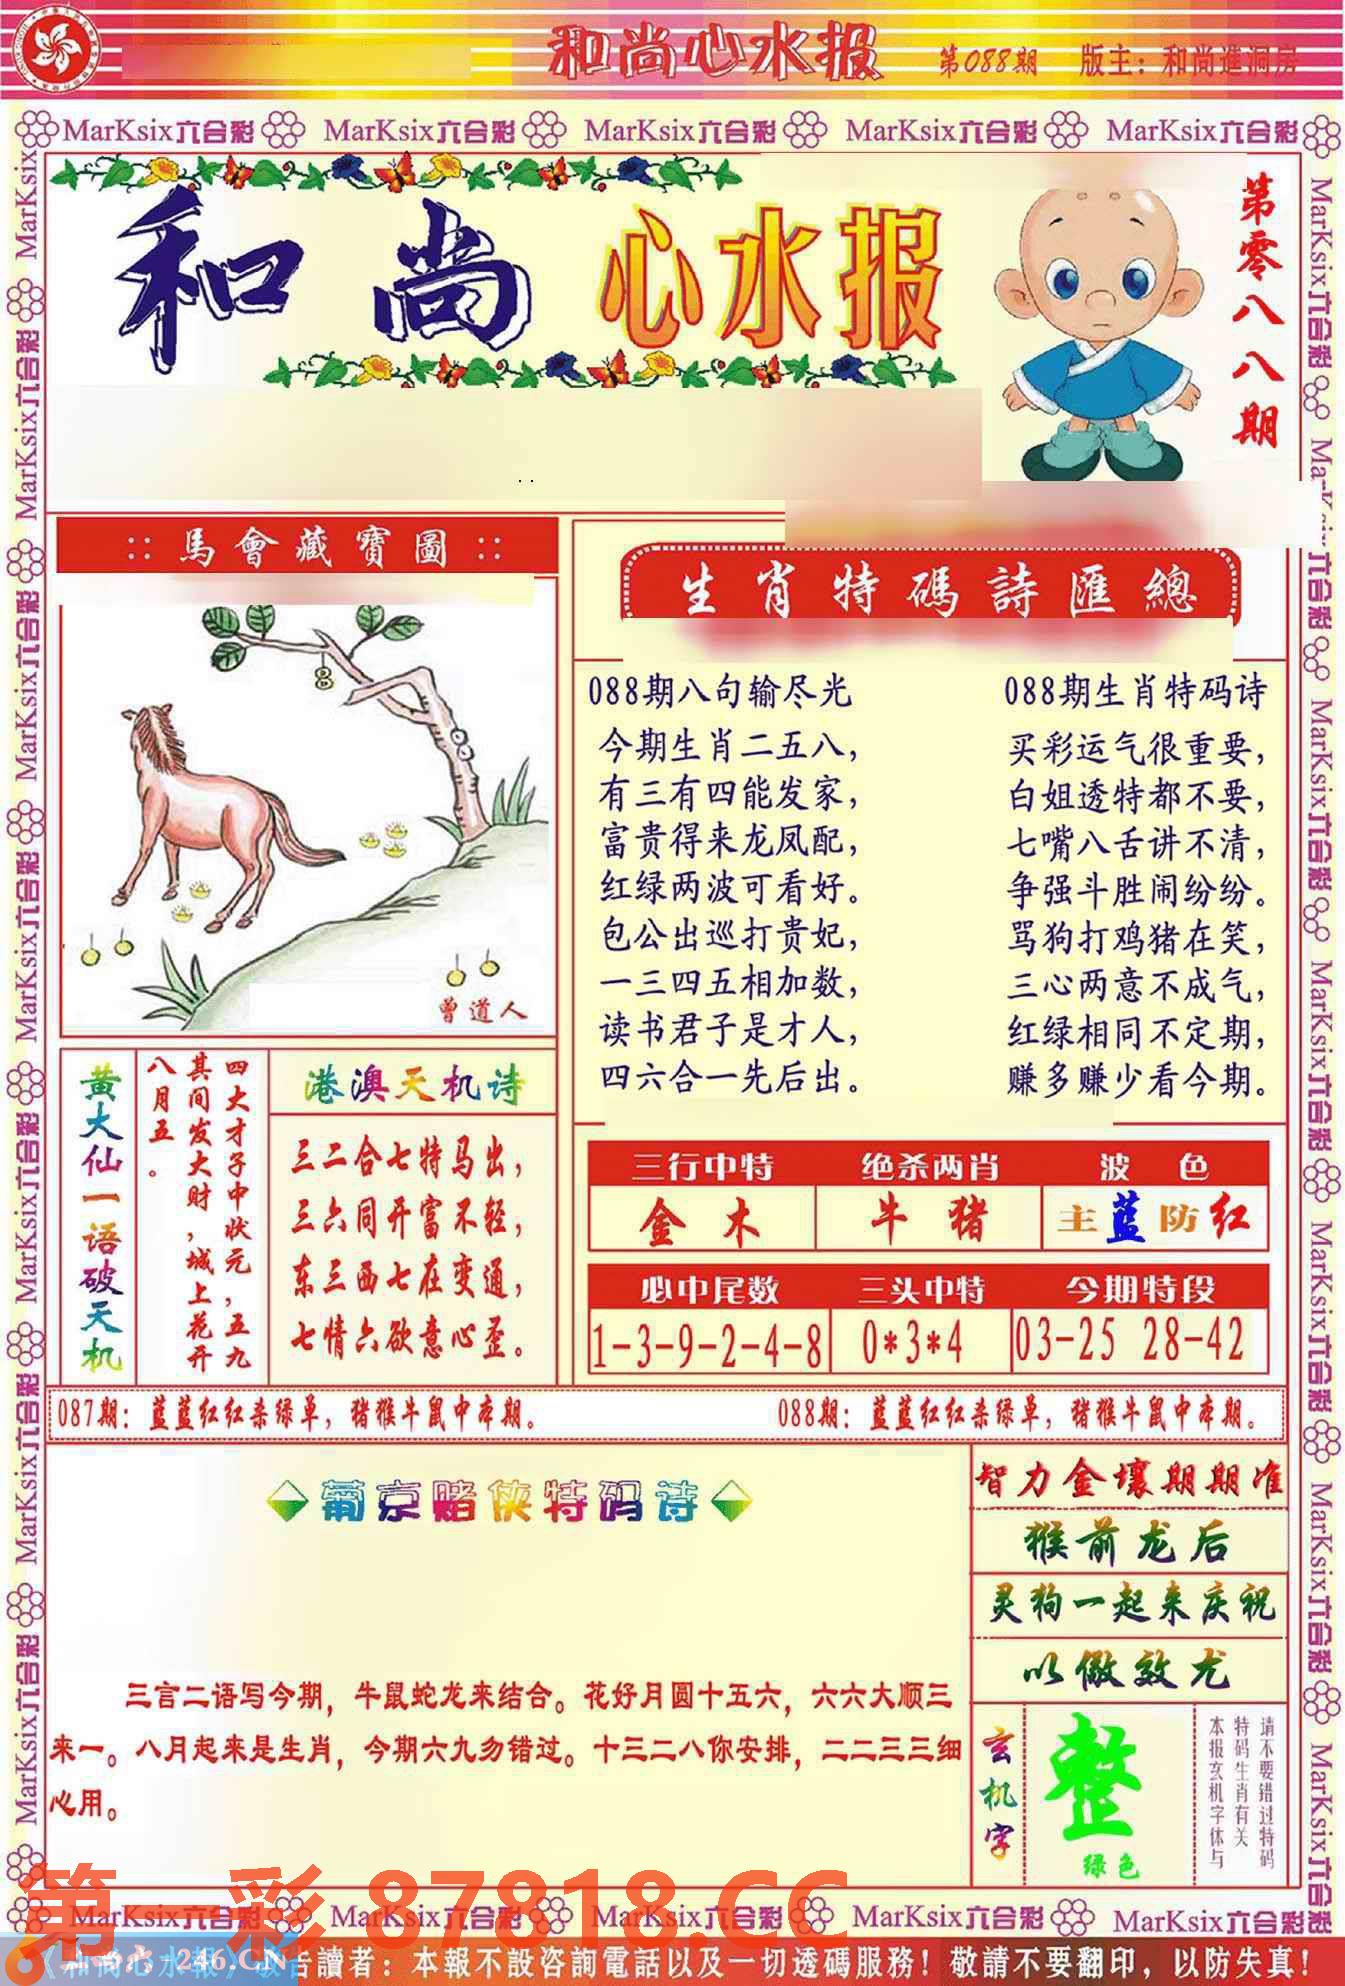 和尚心水报
第088期
版主：和尚進洞房
MarKsix六合彩 MarKsix六合彩 MarKsix六合彩 MarKsix六合彩 MarKsix六合彩
和尚心水报
第零八八期
:: 馬會藏寶圖 ::
8
曾道人
生肖特碼詩匯總
088期八句输尽光
今期生肖二五八，
有三有四能发家，
富贵得来龙凤配，
红绿两波可看好。
包公出巡打贵妃，
一三四五相加数，
读书君子是才人，
四六合一先后出。
088期生肖特码诗
买彩运气很重要，
白姐透特都不要，
七嘴八舌讲不清，
争强斗胜闹纷纷。
骂狗打鸡猪在笑，
三心两意不成气，
红绿相同不定期，
赚多赚少看今期。
黄大仙一语破天机
四大才子中状元，五九
其间发大财，城上花开
八月五。
港澳天机诗
三二合七特马出，
三六同开富不轻，
东三西七在变通，
七情六欲意心歪。
三行中特 绝杀两肖 波色
金木 牛猪 主蓝防红
必中尾数 三头中特 今期特段
1-3-9-2-4-8 0*3*4 03-25 28-42
087期：蓝蓝红红杀绿单，猪猴牛鼠中本期。
088期：蓝蓝红红杀绿单，猪猴牛鼠中本期。
葡京赌侠特码诗
三言二语写今期，牛鼠蛇龙来结合。花好月圆十五六，六六大顺三
来一。八月起来是生肖，今期六九勿错过。十三二八你安排，二二三三细
心用。
智力金壤期期准
猴前龙后
灵狗一起来庆祝
以儆效尤
玄机字
整
绿色
请不要错过特码
特码生肖有关
本报玄机字体与
第一彩 87818.CC
MarKsix六合彩 MarKsix六合彩 MarKsix六合彩 MarKsix六合彩 MarKsix六合彩
246.CN
告讀者：本報不設咨詢電話以及一切透碼服務！敬請不要翻印，以防失真！